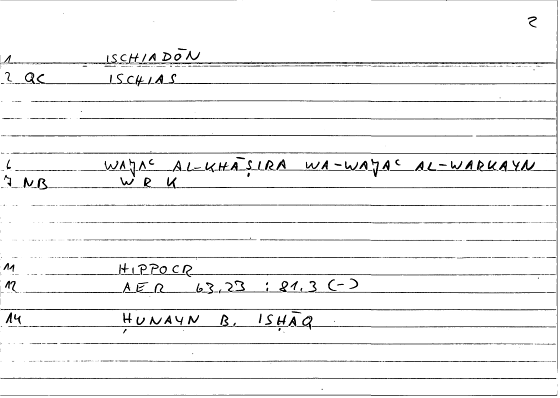 2
1 ISCHIADŌN
2 QC ISCHIAS
6 WAǦAʿ AL-KHĀṢIRA WA-WAǦAʿ AL-WARKAYN
7 NB W R K
11 HIPPOCR
12 AER 63.23 : 81.3 (-)
14 ḤUNAYN B. ISḤĀQ